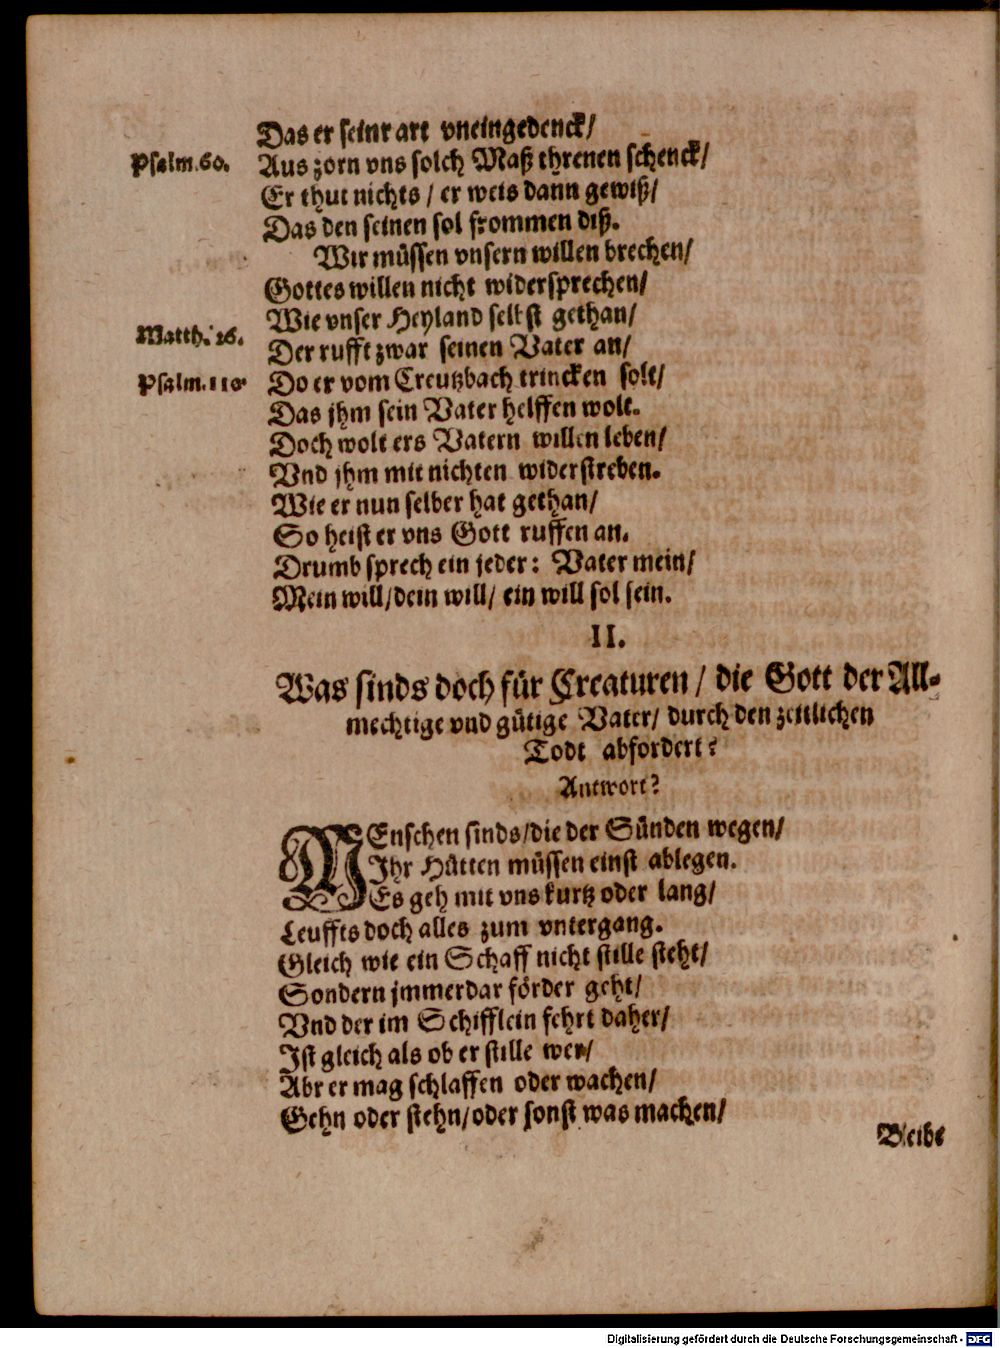 Das er seinr art vneingedenck/
Psalm.60.
Aus zorn vns solch Maß threnen schenck/
Er thut nichts / er weis dann gewiß/
Das den seinen sol frommen diß.
Wir müssen vnsern willen brechen/
Gottes willen nicht widersprechen/
Wie vnser Heyland selbst gethan/
Matth. 26.
Der rufft zwar seinen Vater an/
Psalm.110
Do er vom Creutzbach trincken solt/
Das jhm sein Vater helffen wolt.
Doch wolt ers Vatern willen leben/
Vnd jhm mit nichten widerstreben.
Wie er nun selber hat gethan/
So heist er vns Gott ruffen an.
Drumb sprech ein jeder: Vater mein/
Mein will/dein will/ ein will sol sein.
II.
Was sinds doch für Creaturen / die Gott der All-
mechtige vnd gütige Vater/ durch den zeitlichen
Todt abfordert?
Antwort?
MEnschen sinds/die der Sünden wegen/
Ihr Hütten müssen einst ablegen.
Es geh mit vns kurtz oder lang/
Leuffts doch alles zum vntergang.
Gleich wie ein Schaff nicht stille steht/
Sondern jmmerdar förder geht/
Vnd der im Schifflein fehrt daher/
Ist gleich als ob er stille wer/
Abr er mag schlaffen oder wachen/
Gehn oder stehn/oder sonst was machen/
Bleibt
Digitalisierung gefördert durch die Deutsche Forschungsgemeinschaft - DFG